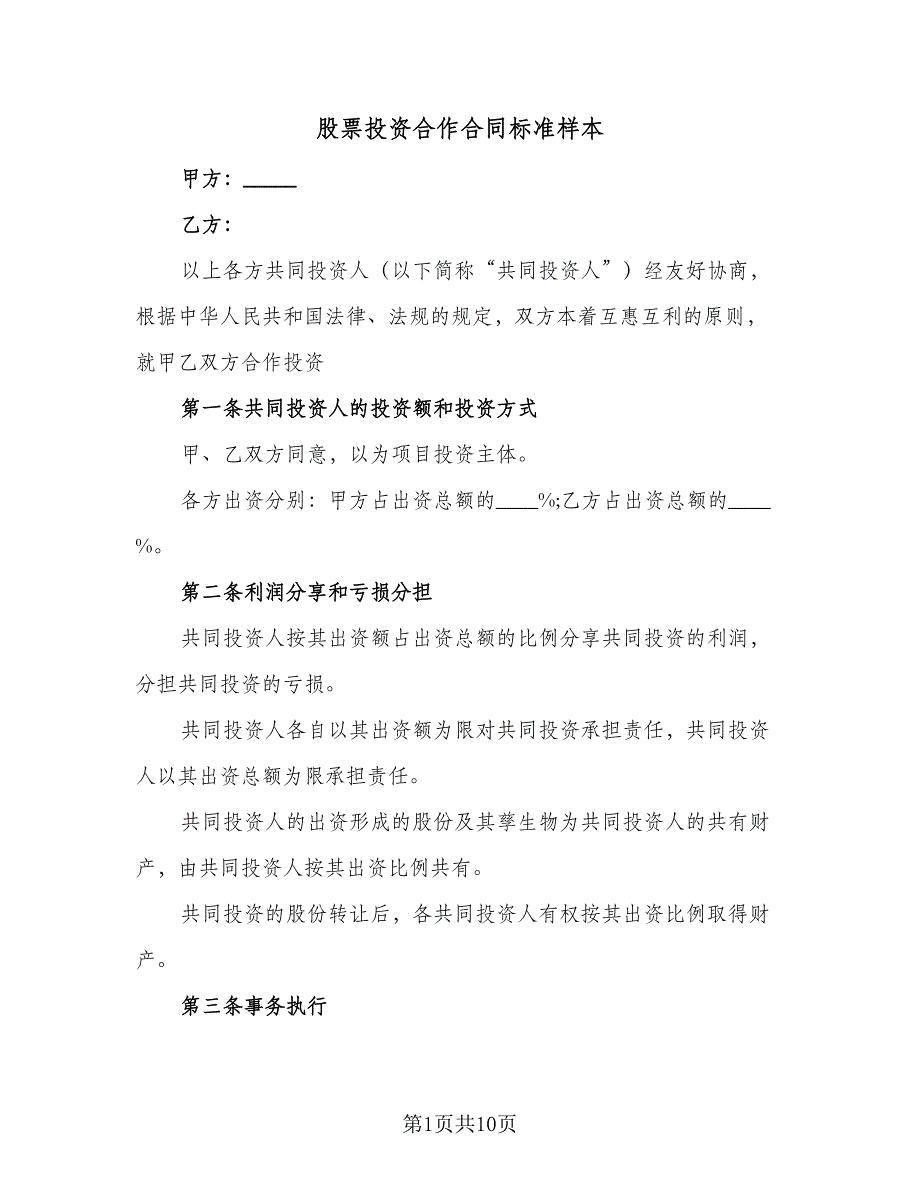 股票投资合作合同标准样本
甲方：_____
乙方：
以上各方共同投资人（以下简称“共同投资人”）经友好协商，
根据中华人民共和国法律、法规的规定，双方本着互惠互利的原则，
就甲乙双方合作投资
第一条共同投资人的投资额和投资方式
甲、乙双方同意，以为项目投资主体。
各方出资分别：甲方占出资总额的____%;乙方占出资总额的____
%。
第二条利润分享和亏损分担
共同投资人按其出资额占出资总额的比例分享共同投资的利润，
分担共同投资的亏损。
共同投资人各自以其出资额为限对共同投资承担责任，共同投资
人以其出资总额为限承担责任。
共同投资人的出资形成的股份及其孳生物为共同投资人的共有财
产，由共同投资人按其出资比例共有。
共同投资的股份转让后，各共同投资人有权按其出资比例取得财
产。
第三条事务执行
第1页共10页